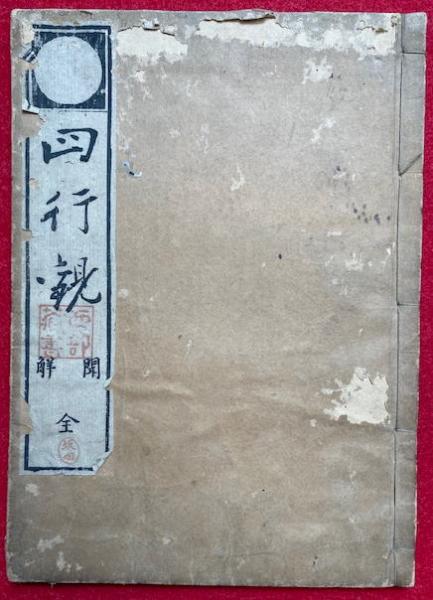 四行觀
聞解
全